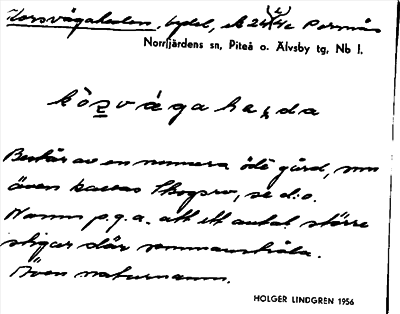 Korsvägaheden, bydel, ek 24 Pormås
Norrfjärdens sn, Piteå o. Älvsby tg, Nb l.
kòṣvágahęda
Består av en numera öde gård, nu
även kallas Skogsro, se d.o.
Namn p.g.a. att ett antal större
stigar där sammanstråla.
Även naturnamn.
HOLGER LINDGREN 1956